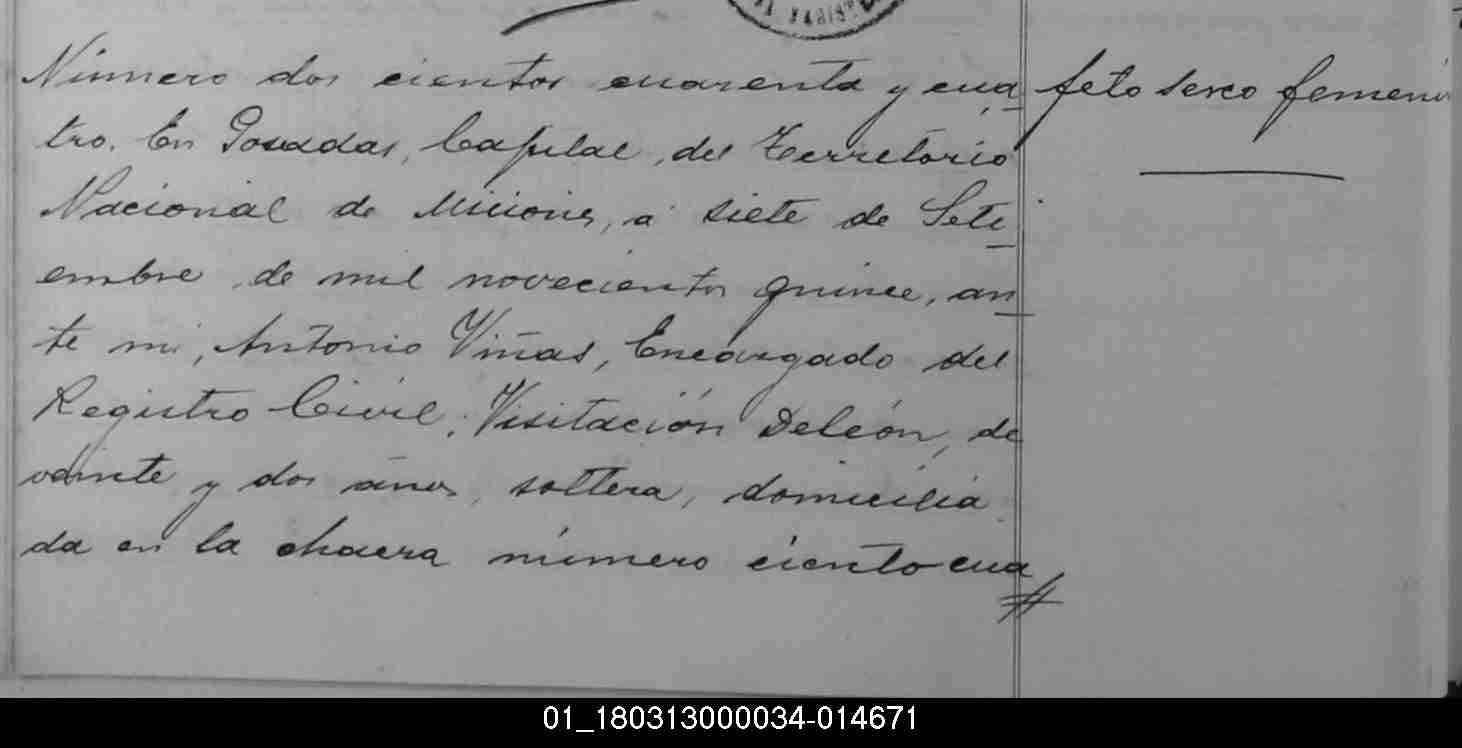 Número dos cientos cuarenta y cua
tro. En Posadas, Capital, del Territorio
Nacional de Misiones, a siete de Seti
embre de mil novecientos quince, an
te mi, Antonio Viñas, Encargado del
Registro Civil, Visitación Deleón, de
veinte y dos años, soltera, domicilia
da en la chacra número ciento cua
feto sexo femeni
01_180313000034-014671